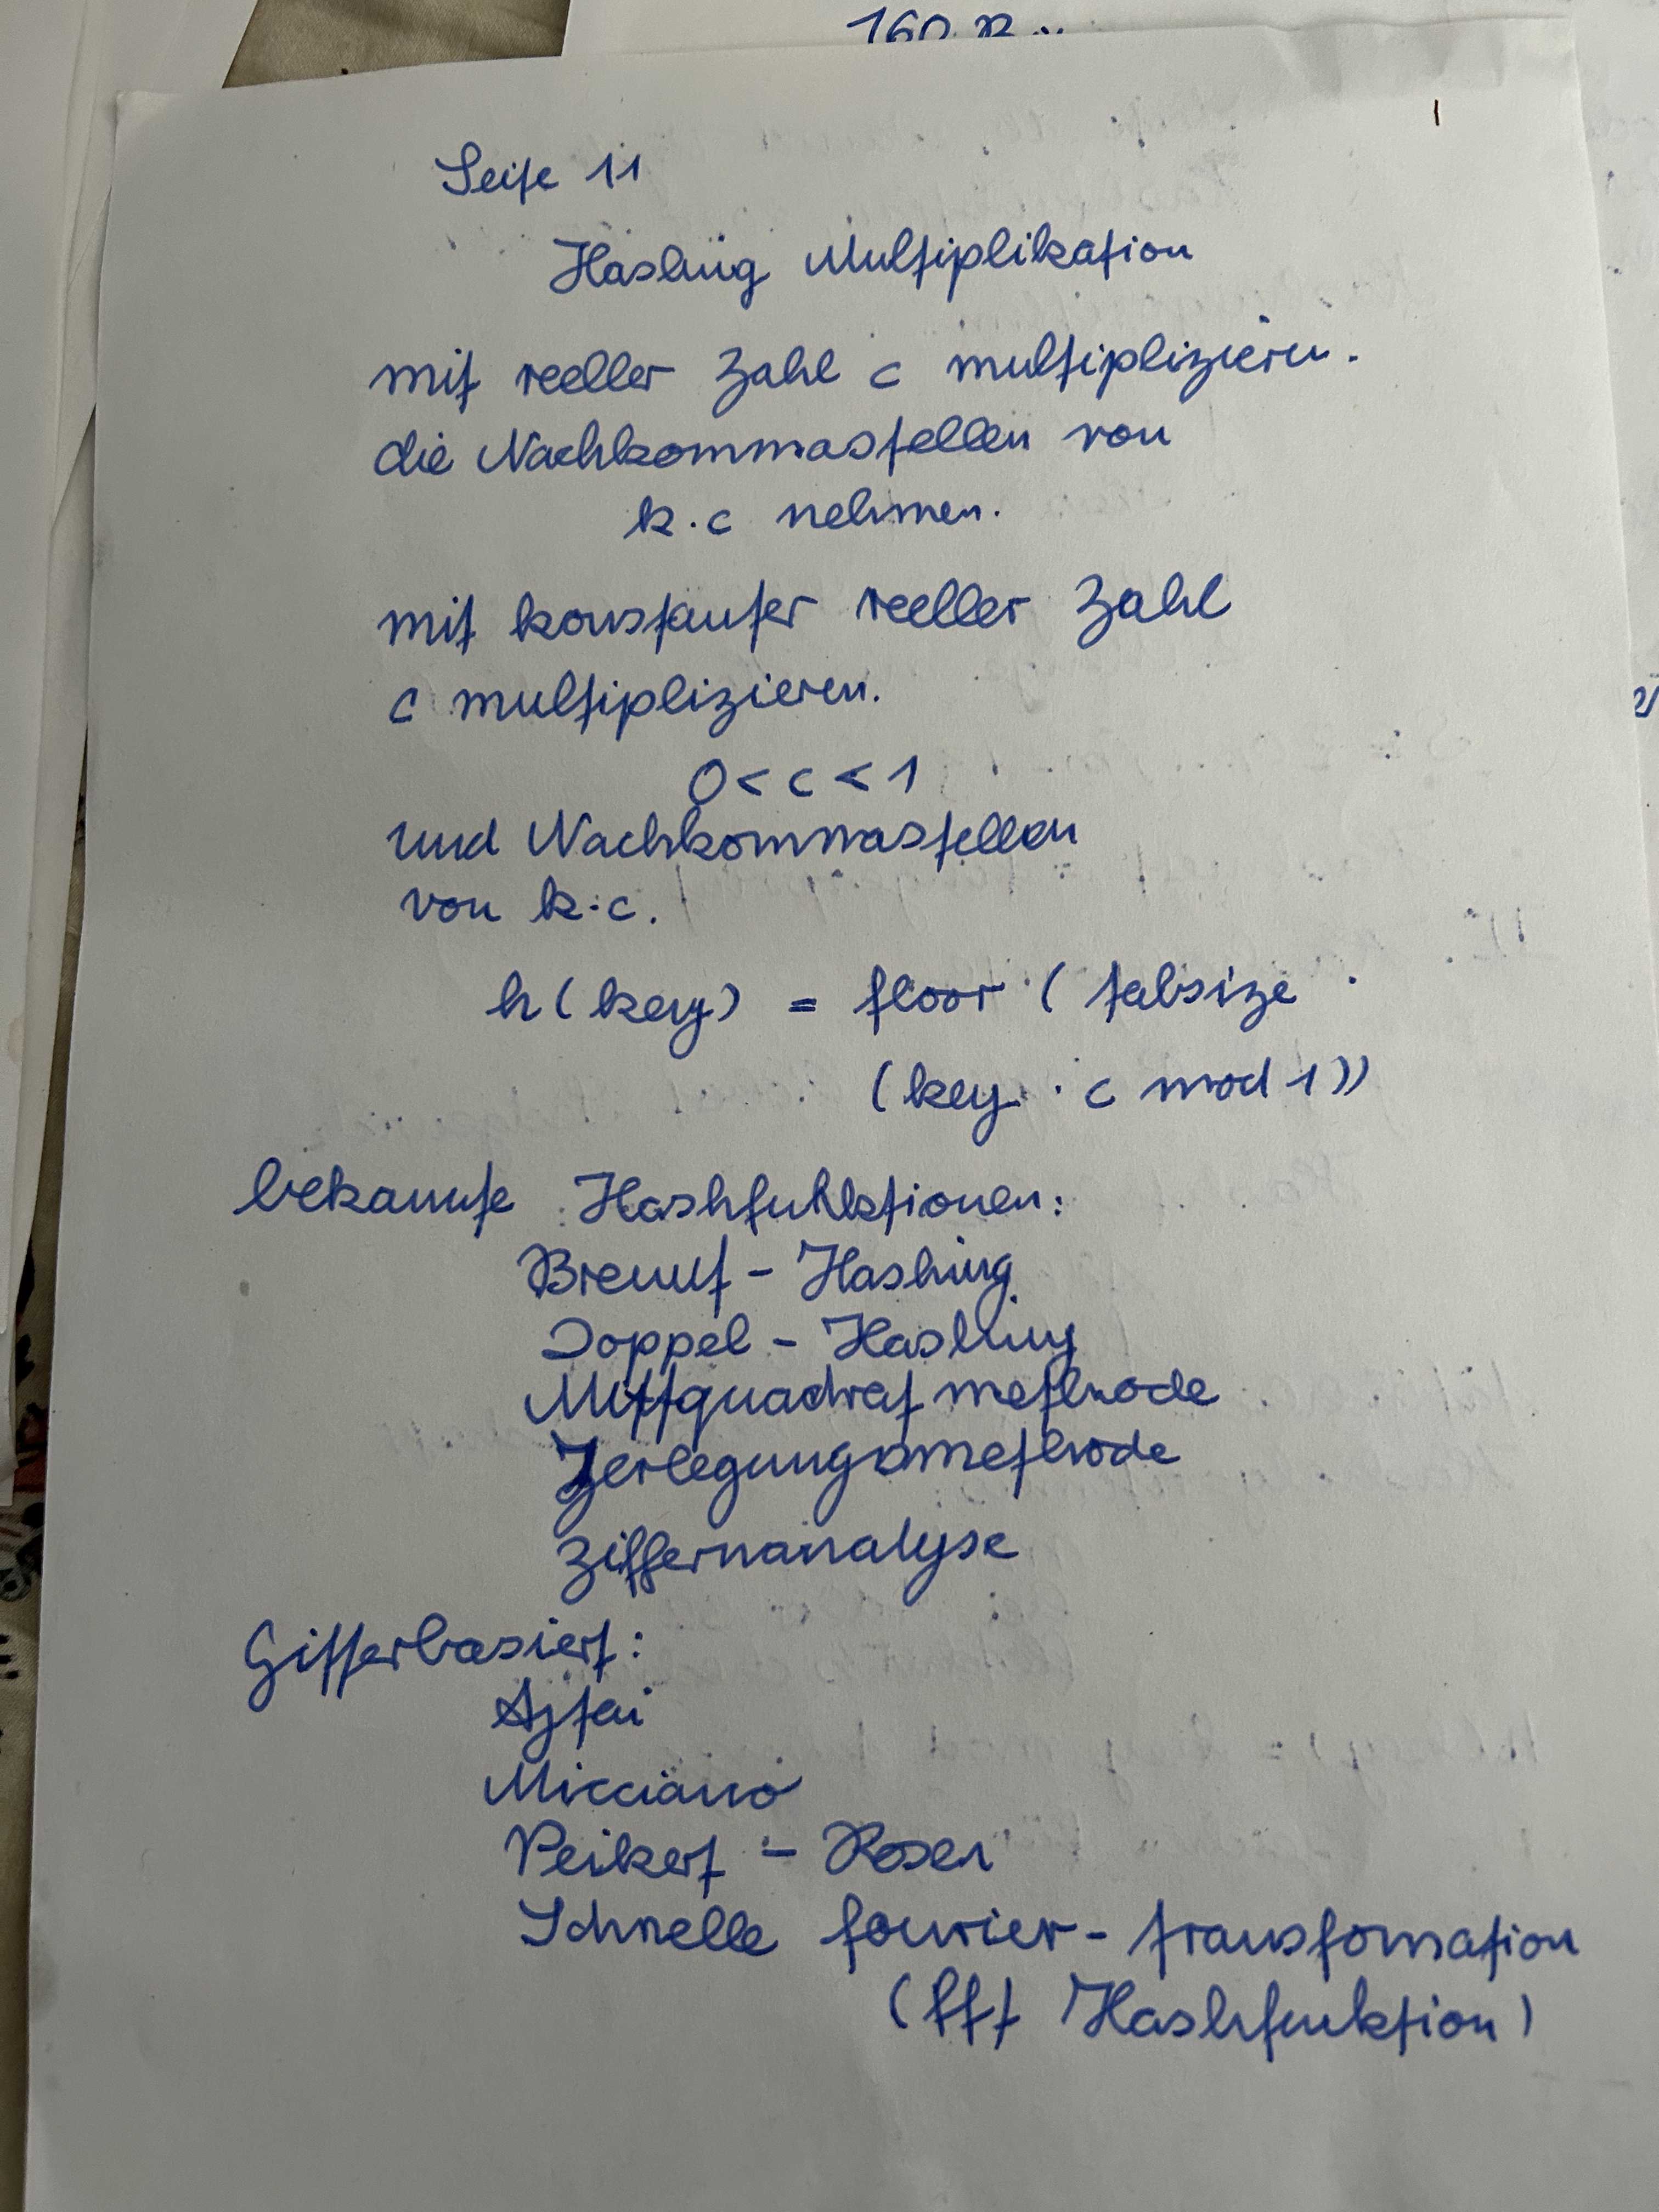 160 B
Seite 11
Hashing Multiplikation
mit reeller Zahl c multiplizieren.
die Nachkommastellen von
k·c nehmen.
mit konstanter reeller Zahl
c multiplizieren.
0 < c < 1
und Nachkommastellen
von k·c.
h(key) = floor (tabsize ·
(key · c mod 1))
bekannte Hashfunktionen:
Brent - Hashing
Doppel - Hashing
Mittquadratmethode
Zerlegungsmethode
Ziffernanalyse
Gitterbasiert:
Ajtai
Micciano
Peikert - Rosen
Schnelle fourier - transfomation
(fft Hashfunktion)